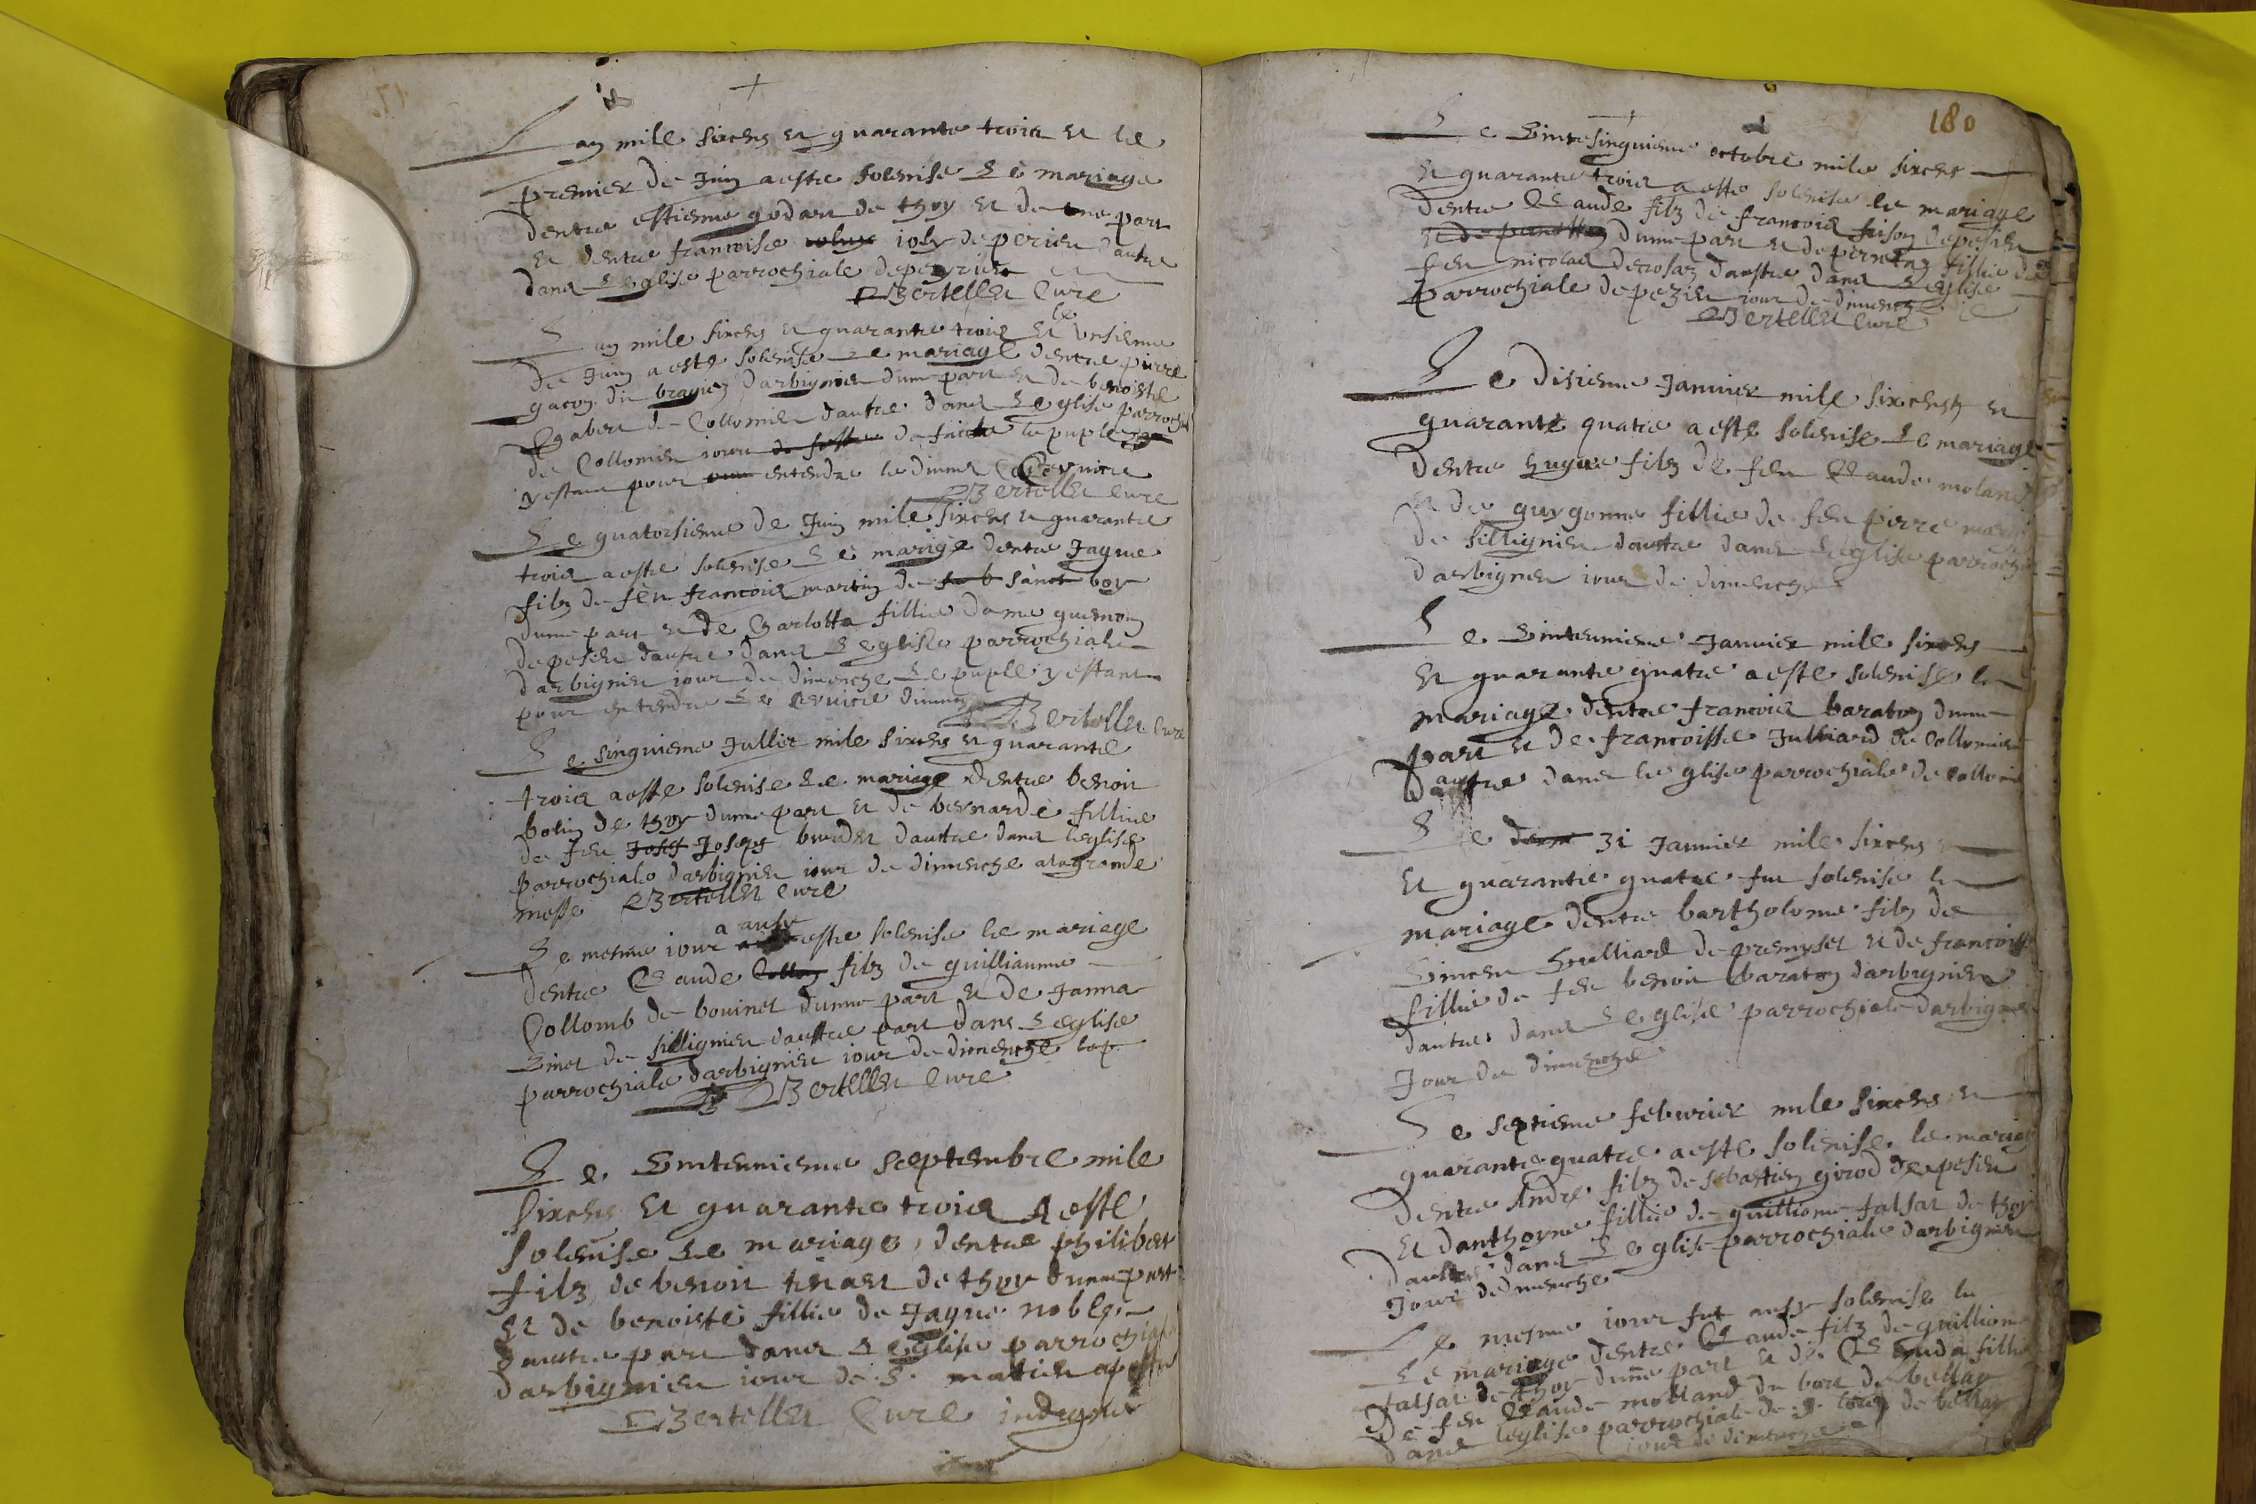 Lan mile sixcens et quarante trois et le
premier de Juin a esté solenise Le mariage
dentre estienne godart de thoy et dune part
et dentre francoise ioly de perieu dautre
dans Leglise parrochiale de peyrieu
Bertellet Cure
Lan mile sixcens et quarante trois et le unsiesme
de Juin a esté solenise Le mariage dentre pierre
gacon dit darbignieu dune part et de benoiste
de Collomieu dautre dans Leglise parrochial
de Collomieu iour de le puple
y estant pour entendre le divine
Bertellet Cure
Le quatorsieme de Juin mile sixcens et quarante
trois a esté solenise Le marige dentre Jaque
filz de feu francois martin de sainct boy
dune part et de Charlotta fillie dame guienon
de pesieu dautre dans Leglise parrochiale
darbignieu iour de dimenche Le puple y estant
pour entendre Le service divin
Bertellet Cure
Le sinquieme Jullet mile sixcens et quarante
trois a esté solenise Le mariage dentre benoit
bolin de thoy dune part et de bernarde fillie
de feu Joseph dautre dans leglise
parrochiale darbignieu iour de dimenche a la grande
messe Bertellet Cure
Le mesme iour a aussy esté solenise le mariage
dentre Claude filz de guilliaume
Collomb de bovinet dunne part et de Janna
de sillignieu daustre part dans Leglise
parrochiale darbignieu iour de dimenche
Bertellet Cure
Le vinteunieme septembre mile
sixcens et quarante trois A esté
solenise Le mariage, dentre philibert
filz de benoit tinart de thoy dunne part
et de benoiste fillie de Jaque noble
dautre part dans Leglise parrochiale
darbignieu iour de S. matieu apostre
Bertellet Cure indigne
180
Le vintesinquieme octobre mile sixcens
et quarante trois a esté solenise le mariage
dentre Claude filz de francois de pesieu
dunne part et de pernetaz fillie de
feu nicolas daustre dans Leglise
parrochiale de pezieu iour de dimenche
Bertellet Cure
Le disieme Janvier mile sixcens et
quarante quatre a esté solenise Le mariage
dentre hugue filz de feu Claude
et de guygonne fillie de feu pierre
de sillignieu dautre dans Leglise parrochi
darbignieu iour de dimenche
Le vinteunieme Janvier mile sixcens
et quarante quatre a esté solenise le
mariage dentre francois baraton dune
part et de francoisse Julliard de Collomieu
dautre dans leglise parrochiale de
Le 31 Janvier mile sixcens
et quarante quatre fut solenise le
mariage dentre bartholome filz de
Simeon de premyset et de francoise
fillie de feu benoit baraton darbignieu
dautre dans Leglise parrochiale darbignieu
Jour de dimenche
Le septieme febvrier mile sixcens et
quarante quatre a esté solenise le mariag
dentre André filz de sebastien girod de pesieu
et danthoyne fillie de guillieme falsat de thoy
dautre dans Leglise parrochiale darbignieu
Jour de dimenche
Le mesme iour fut aussy solenise le
Le mariage dentre Claude filz de guillieme
falsat de thoy dunne part et de Clauda fillie
de feu Claude mottand du bort de bellay
dans leglise parrochiale de de bellay
iour de dimenche